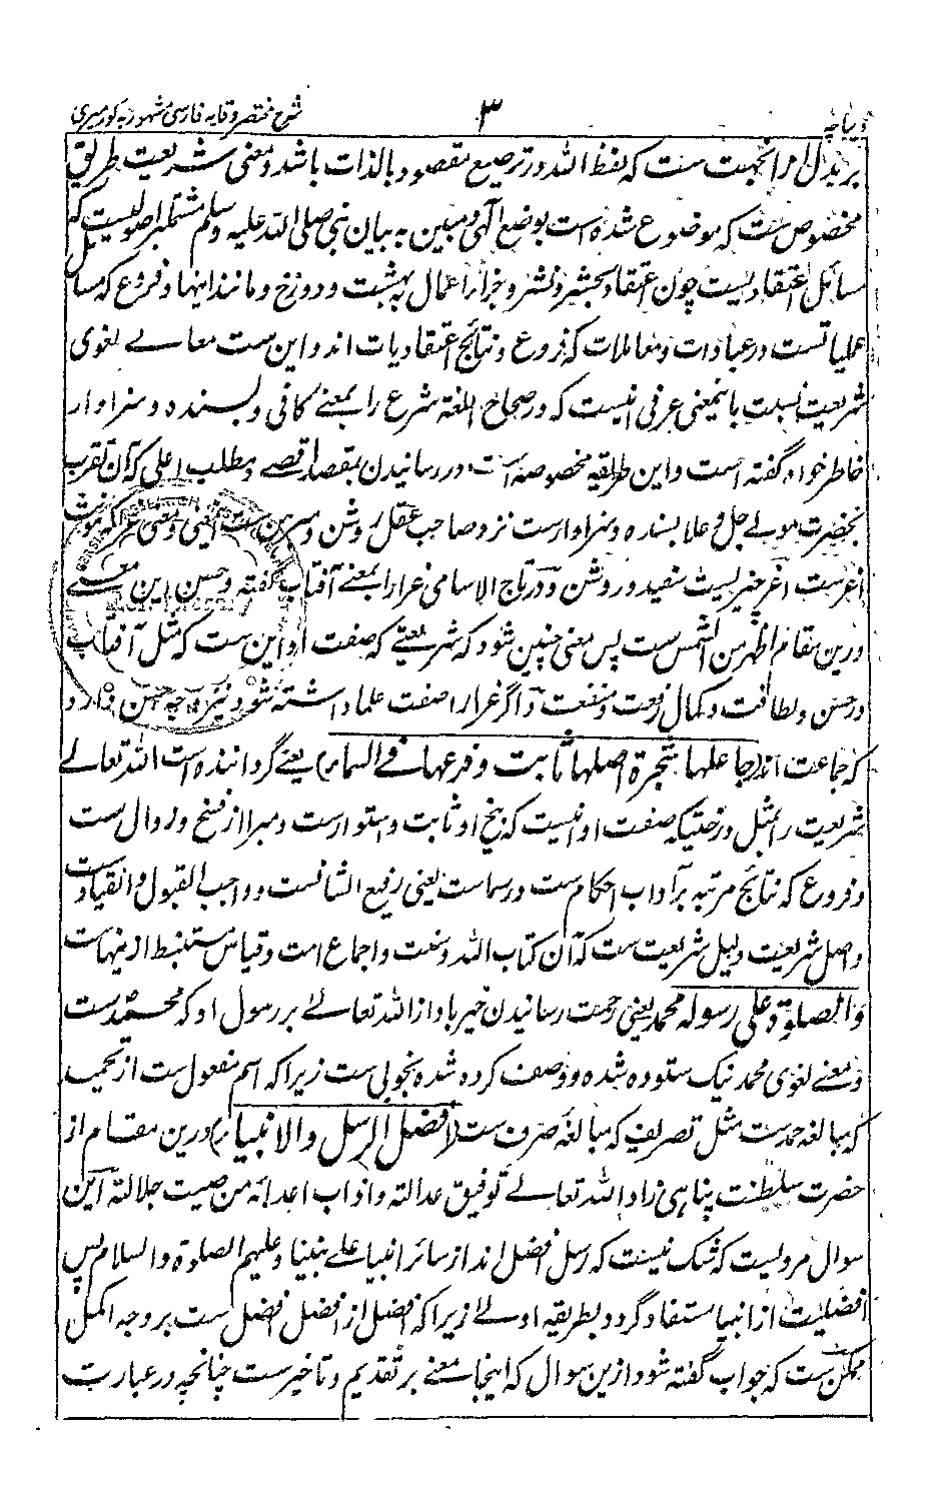 دیباچه ۳ شرح مختصر وقایه فارسی مشهور به کور میری
برندل مرا نجهت ست که لفظ الله در ترصیع مقصود بالذات باشد و معنی شریعت طریق
مخصوص ست که موضوع شده است بوضع آلهی و مبین به بیان نبی صلی الله علیه وسلم مشتملبر اصولیست که
مسائل اعتقادیست چون اعتقاد بحشر و نشر و جزاء اعمال به بهشت و دوزخ و مانند اینها و فروع که مسائل
عملیاتست در عبادات و معاملات که فروع و نتایج اعتقادیات اند و این ست معانے لغوی
شریعت نسبت باینمعنی عرفی آنیست که در صحاح اللغة شرع را بمعنے کافی و بسنده و سزاوار
خاطر خواه گفته است و این طریقه مخصوصه است در رسانیدن بمقصد اقصے و مطلب اعلی که آن تقرب
بحضرت مولے جل و علا بسنده و سزاوار ست نزد صاحب عقل روشن و مبرهن ست یعنی و معنی غرا که مونث
اغر ست اغر چیزیست سفید و روشن و در تاج الاسامی غرا را بمعنے آفتاب گفته و حسن این معنے
درین مقام اظهر من الشمس ست پس معنی چنین شود که شریعتے که صفت او این ست که مثل آفتاب
در حسن و لطافت و کمال رفعت و منفعت و اگر غرا را صفت علما داشته شود نیز وجه حسن دارد
که جماعت اند (جاعلها شجرة اصلها ثابت و فرعها فے السماء) یعنے گرداننده است الله تعالے
شریعت را بمثل درختیکه صفت او آنیست که بیخ او ثابت و استوار ست و مبرا از فسخ و زوال ست
و فروع که نتایج مرتبه بر آداب احکام ست در سماست یعنی رفیع الشانست و واجب القبول و انقیادست
و اصل شریعت دلیل شریعت ست که آن کتاب الله و سنت و اجماع امت و قیاس مستنبط از ینهاست
والصلوة علی رسوله محمد یعنی رحمت رسانیدن خیر باد از الله تعالے بر رسول او که محمد ست
و معنے لغوی محمد نیک ستوده شده و وصف کرده شده بخوبی ست زیرا که اسم مفعول ست از تحمید
که مبالغه حمد ست مثل تصریف که مبالغه صرف ست (افضل الرسل والانبیاء) درین مقام از
حضرت سلطنت پناهی زاد الله تعالے توفیق عدالته و اذاب اعدائه من صیت جلالته این
سوال مرویست که شک نیست که رسل افضل اند از سائر انبیا علے نبینا و علیهم الصلوة والسلام پس
افضلیت از انبیا مستفاد گردد بطریقه اولے زیرا که افضل از افضل افضل ست بر وجه اکمل
ممکن ست که جواب گفته شود ازین سوال که اینجا معنے بر تقدیم و تاخیرست چنانچه در عبارت